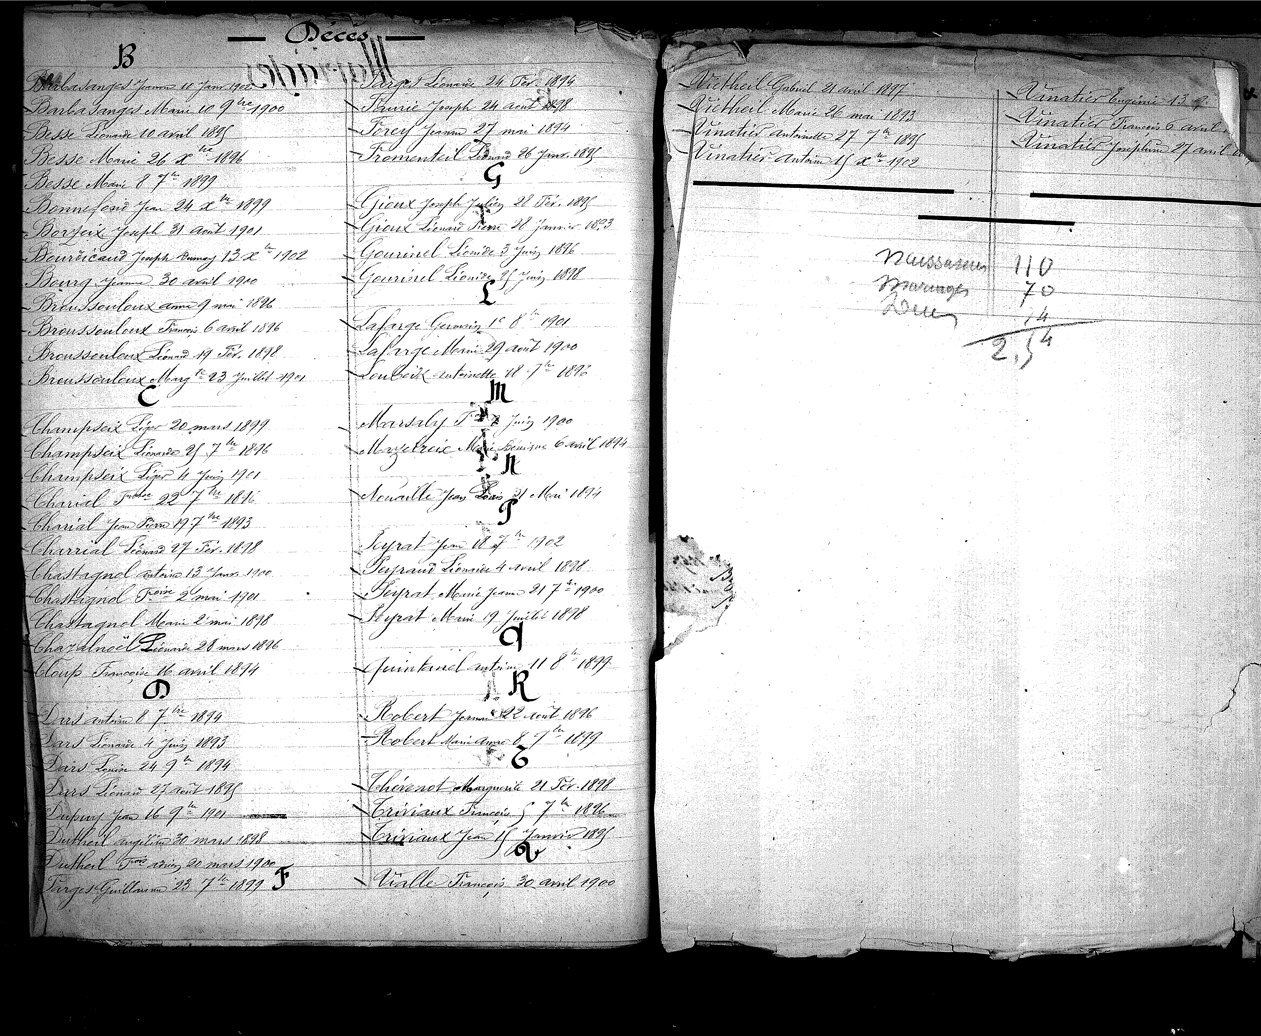 Décès
B
Barbasanges Jeanne 10 Janv 1902
Barbasanges Marie 10 9bre 1900
Besse Léonarde 10 avril 1895
Besse Marie 26 Xbre 1896
Besse Marie 8 7bre 1899
Bonnefond Jean 24 Xbre 1899
Borzeix Joseph 31 août 1901
Bourdicaud Joseph 13 Xbre 1902
Bourg Jeanne 30 avril 1900
Broussouloux anna 9 mai 1896
Broussouloux François 6 avril 1896
Broussouloux Léonard 19 Fév. 1898
Broussouloux Margte 23 Juillet 1901
C
Champseix Léger 20 mars 1899
Champseix Léonarde 25 7bre 1896
Champseix Léger 4 Juin 1901
Charial 22 7bre 1896
Charial Jean Pierre 19 7bre 1893
Charrial Léonard 27 Fév. 1898
Chastagnol antoine 13 Janv. 1900
Chastagnol Froise 2 mai 1901
Chastagnol Marie 2 mai 1898
Chazalnoël Léonarde 28 mars 1896
Cloup Françoise 16 avril 1894
D
Dars antoine 8 7bre 1894
Dars Léonarde 4 Juin 1893
Dars Louise 24 9bre 1894
Dars Léonard 27 août 1895
Dupuy Jean 16 9bre 1901
Dutheil angéline 30 mars 1898
Dutheil Frois adrien 20 mars 1900
F
Farges Guillaume 23 7bre 1899
Farges Léonarde 24 Fév. 1894
Faurie Joseph 24 août 1898
Forey Jeanne 27 mai 1894
Fromenteil Léonard 26 Janv. 1895
G
Gioux Joseph Julien 28 Fév. 1895
Gioux Léonard Pierre 28 Janvier 1893
Gourinel Léonarde 3 Juin 1896
Gourinel Léonarde 25 Juin 1898
L
Lafarge Germain 1er 8bre 1901
Lafarge Marie 29 août 1900
Loubeix antoinette 18 7bre 1896
M
Marsaly Juin 1900
Mazeireix Marie 6 avril 1894
N
Nouaille Jean Louis 21 Mai 1894
P
Peyrat Jean 18 7bre 1902
Peyraud Léonarde 4 avril 1898
Peyrat Marie Jeanne 21 7bre 1900
Peyrat Marie 19 Juillet 1898
Q
Quintanel antoine 11 8bre 1899
R
Robert Jeanne 22 août 1896
Robert Marie anne 8 9bre 1899
T
Thévenot Marguerite 21 Fév. 1898
Triviaux François 5 7bre 1896
Triviaux Jean 15 Janvier 1895
V
Vialle François 30 avril 1900
Vietheil Gabriel 21 avril 1897
Vietheil Marie 26 mai 1893
Vinatier antoinette 27 7bre 1895
Vinatier antoine 15 Xbre 1902
Vinatier Eugénie 13
Vinatier François 6 avril
Vinatier Joséphine 27 avril
Naissances 110
mariages 70
Décès 74
254